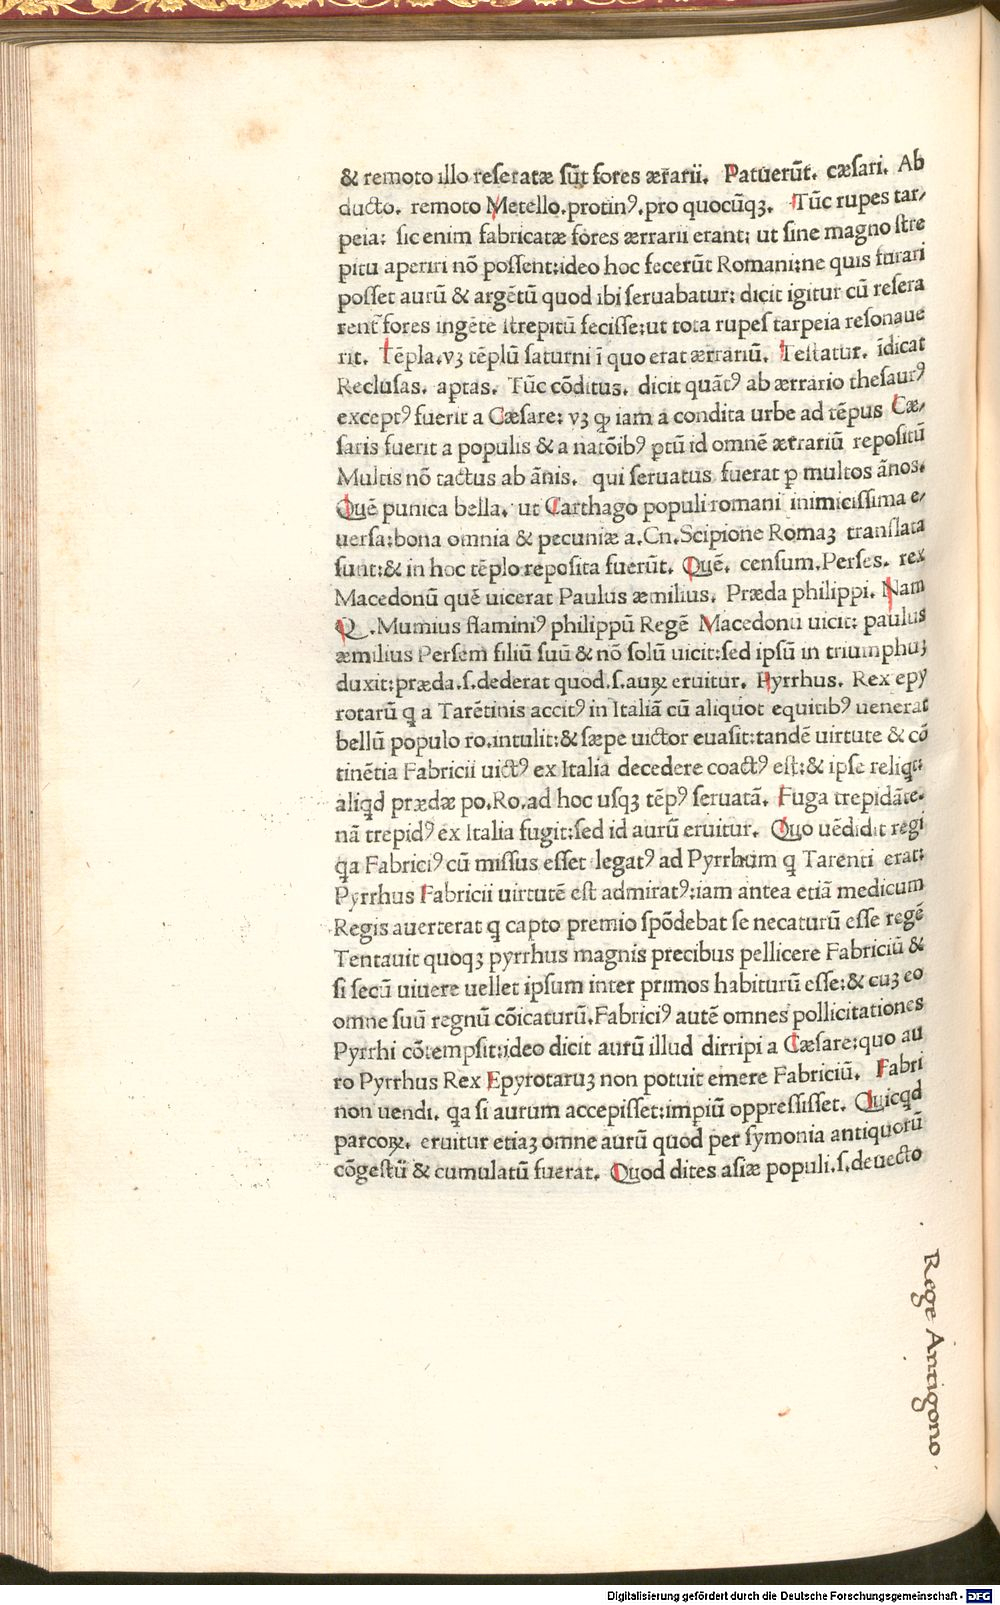 & remoto illo reseratæ sūt fores ærarii. Patuerūt. cæsari. Ab
ducto. remoto Metello.protinꝰ.pro quocūqꝫ. Tūc rupes tar/
peia: sic enim fabricatæ fores ærrarii erant: ut sine magno stre
pitu aperiri nō possent:ideo hoc fecerūt Romani:ne quis furari
posset aurū & argētū quod ibi seruabatur: dicit igitur cū resera
rent fores ingētē strepitū fecisse:ut tota rupes tarpeia resonaue
rit. Tēpla.vꝫ tēplū saturni ī quo erat ærrariū. Testatur. īdicat
Reclusas. aptas. Tūc cōditus. dicit quātꝰ ab ærrario thesaurꝰ
exceptꝰ fuerit a Cæsare: vꝫ ꝙ iam a condita urbe ad tēpus Cæ/
saris fuerit a populis & a natōibꝰ ꝑtū id omnē ærrariū repositū
Multis nō tactus ab ānis. qui seruatus fuerat ꝑ multos ānos.
Quē punica bella. ut Carthago populi romani inimicissima e/
uersa:bona omnia & pecuniæ a.Cn.Scipione Romaꝫ translata
sunt:& in hoc tēplo reposita fuerūt. Quē. censum.Perses. rex
Macedonū quē uicerat Paulus æmilius. Præda philippi. Nam
Q.Mumius flaminiꝰ philippū Regē Macedonū uicit: paulus
æmilius Persem filiū suū & nō solū uicit:sed ipsū in triumphuꝫ
duxit:præda.s.dederat quod.s.auꝝ eruitur. Pyrrhus. Rex epy
rotarū ꝗ a Tarētinis accitꝰ in Italiā cū aliquot equitibꝰ uenerat
bellū populo ro.intulit:& sæpe uictor euasit:tandē uirtute & cō
tinētia Fabricii uictꝰ ex Italia decedere coactꝰ est:& ipse reliqt:
aliqd prædæ po.Ro.ad hoc usqꝫ tēpꝰ seruatā. Fuga trepidāte.
nā trepidꝰ ex Italia fugit:sed id aurū eruitur. Quo uēdidit regi
ꝗa Fabriciꝰ cū missus esset legatꝰ ad Pyrrhum ꝗ Tarenti erat:
Pyrrhus Fabricii uirtutē est admiratꝰ:iam antea etiā medicum
Regis auerterat ꝗ capto premio spōdebat se necaturū esse regē
Tentauit quoqꝫ pyrrhus magnis precibus pellicere Fabriciū &
si secū uiuere uellet ipsum inter primos habiturū esse:& cuꝫ eo
omne suū regnū cōicaturū.Fabriciꝰ autē omnes pollicitationes
Pyrrhi cōtempsit:ideo dicit aurū illud dirripi a Cæsare:quo au
ro Pyrrhus Rex Epyrotaruꝫ non potuit emere Fabriciū. Fabri
non uendi. ꝗa si aurum accepisset:impiū oppressisset. Quicqd
parcoꝝ. eruitur etiaꝫ omne aurū quod per symonia antiquorū
cōgestū & cumulatū fuerat. Quod dites asiæ populi.s.deuecto
Rege Antigono
Digitalisierung gefördert durch die Deutsche Forschungsgemeinschaft - DFG